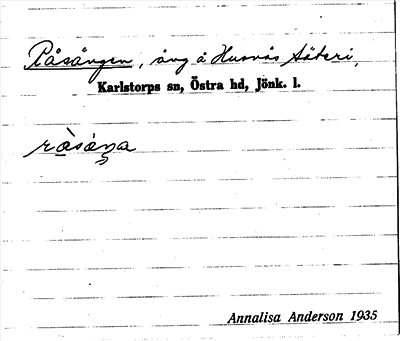 Råsången, äng å Husnäs Säteri,
Karlstorps sn, Östra hd, Jönk. l.
Annalisa Anderson 1935